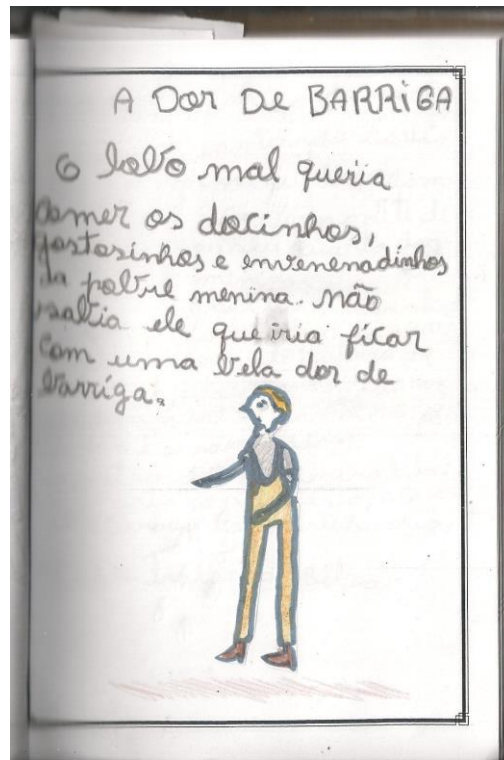 A Dor De BARRiGA
O lobo mal queria
comer os docinhos,
gostosinhos e envenenadinhos
da pobre menina. não
sabia ele que iria ficar
com uma bela dor de
barriga.